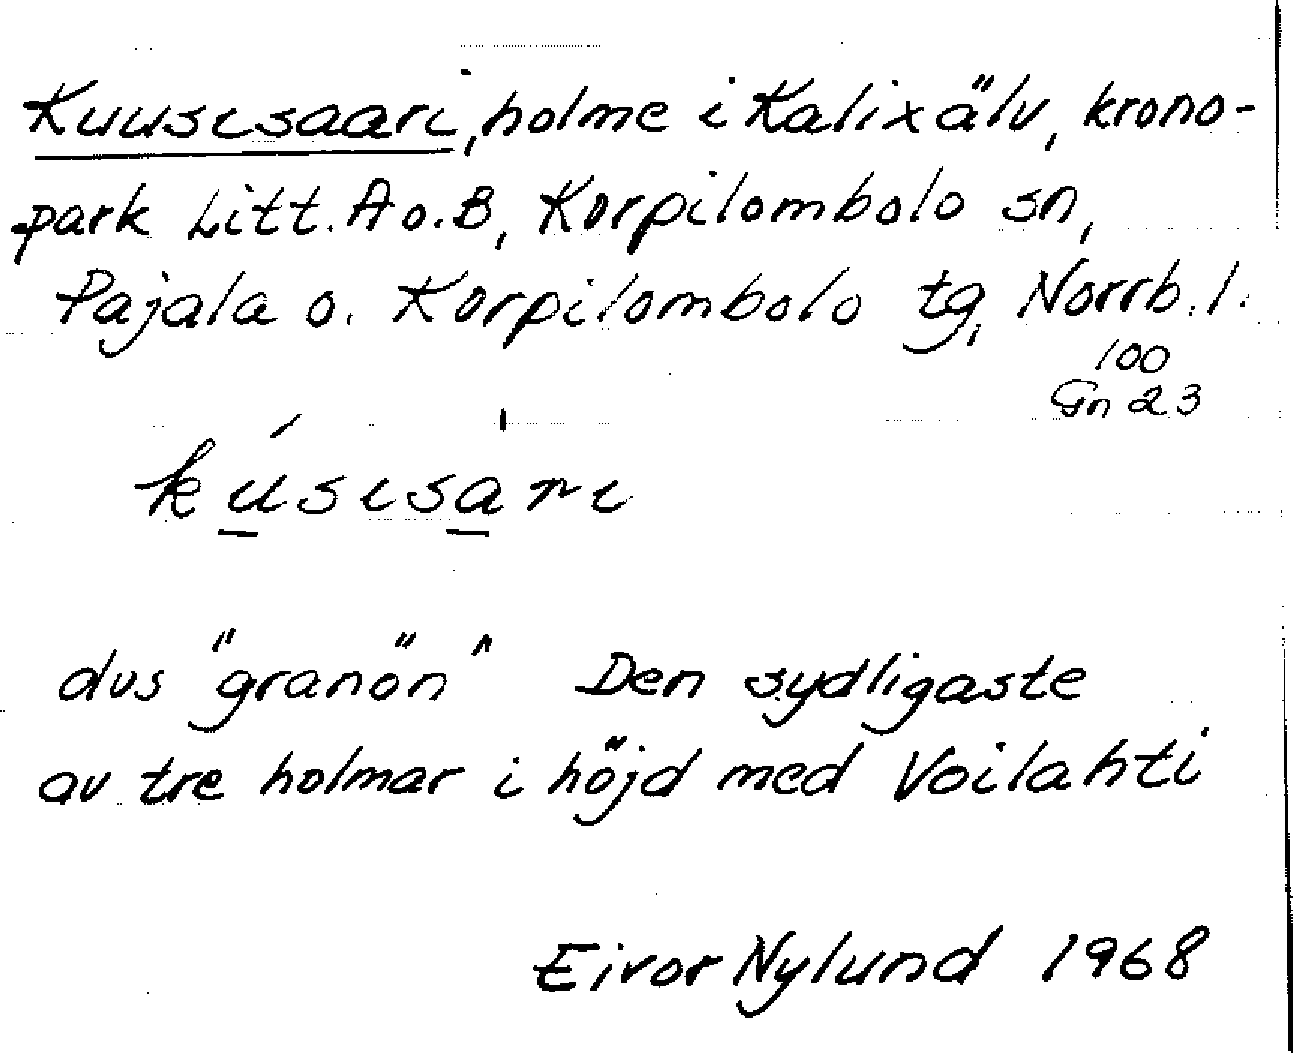 Kuusisaari, holme i Kalixälv, krono-
park Litt. A o. B, Korpilombolo sn,
Pajala o. Korpilombolo tg, Norrb. l.
100
Gn 23
kúsisạ̄ri
dvs "granön" Den sydligaste
av tre holmar i höjd med Voilahti
Eivor Nylund 1968